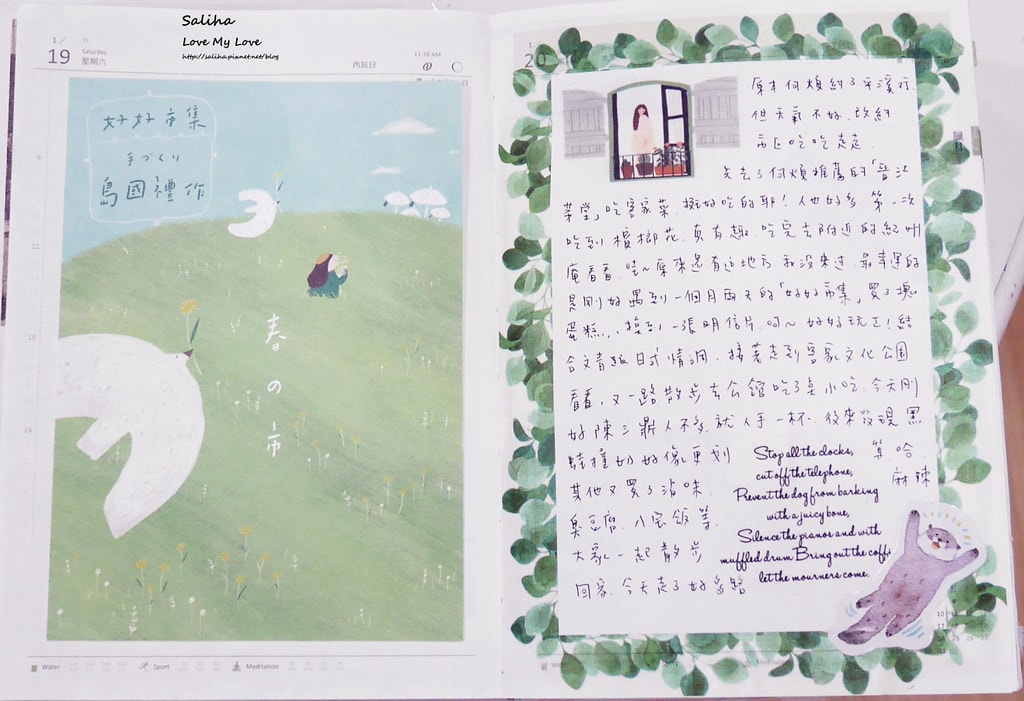 Saliha
Love My Love
http://saliha.pixnet.net/blog
1/
19
Saturday
星期六
丙辰日
好好市集
手づくり
島國禮作
春の市
Water
Sport
Meditation
20
原本何煩約了平溪行
但天氣不好,改約
市區吃吃走走
先去了何煩推薦的「晉江
茶堂」吃客家菜,挺好吃的耶!人也好多,第一次
吃到檳榔花,真有趣,吃完去附近的紀州
庵看看,哇~原來還有這地方我沒來过,最幸運的
是剛好遇到一個月兩天的「好好市集」,買了塊
蛋糕,,換到一張明信片,呵~好好玩ㄛ!結
合文青版日式情調,接著走到客家文化公園
看看,又一路散步去公館吃了桌小吃,今天剛
好陳三鼎人不多,就人手一杯,後來發現黑
其他又買了滷味
臭豆腐、八宝飯等
大家一起散步
回家,今天走了好多路
算哈
麻辣
Stop all the clocks,
cut off the telephone,
Prevent the dog from barking
with a juicy bone,
Silence the pianos and with
muffled drum Bring out the coffi
let the mourners come.